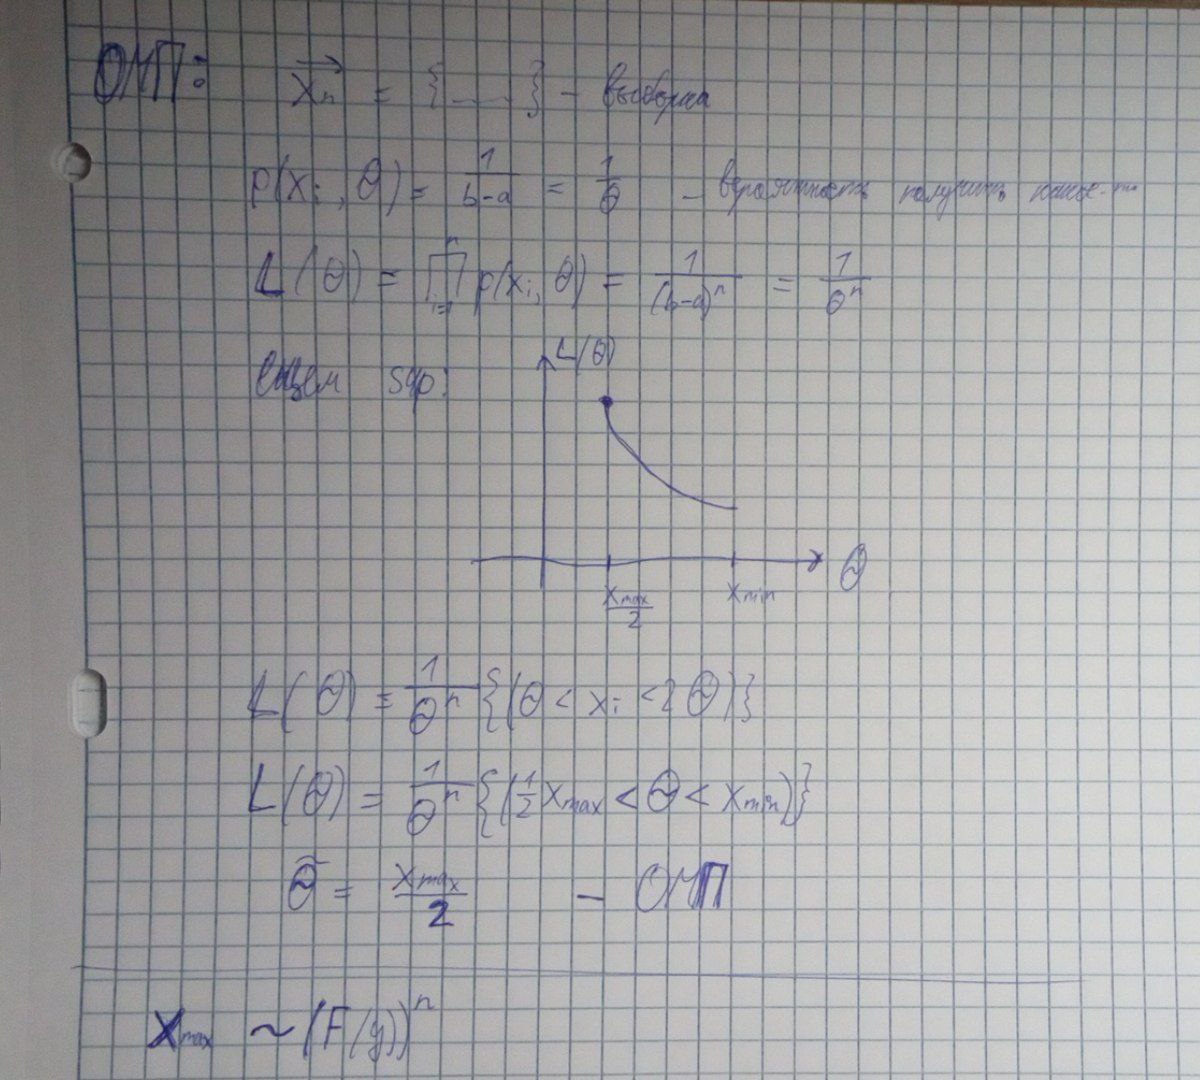 ОМП: Xₙ = {......} – выборка
p(xᵢ, θ) = 1/(b-a) = 1/θ – вероятность получить какое-то
L(θ) = ∏ᵢ₌₁ⁿ p(xᵢ, θ) = 1/(b-a)ⁿ = 1/θⁿ
Ищем sup:
L(θ)
θ
x_max/2 x_min
L(θ) = 1/θⁿ {(θ < xᵢ < 2θ)}
L(θ) = 1/θⁿ {(1/2 x_max < θ < x_min)}
θ̃ = x_max/2 – ОМП
X_max ~ (F(y))ⁿ